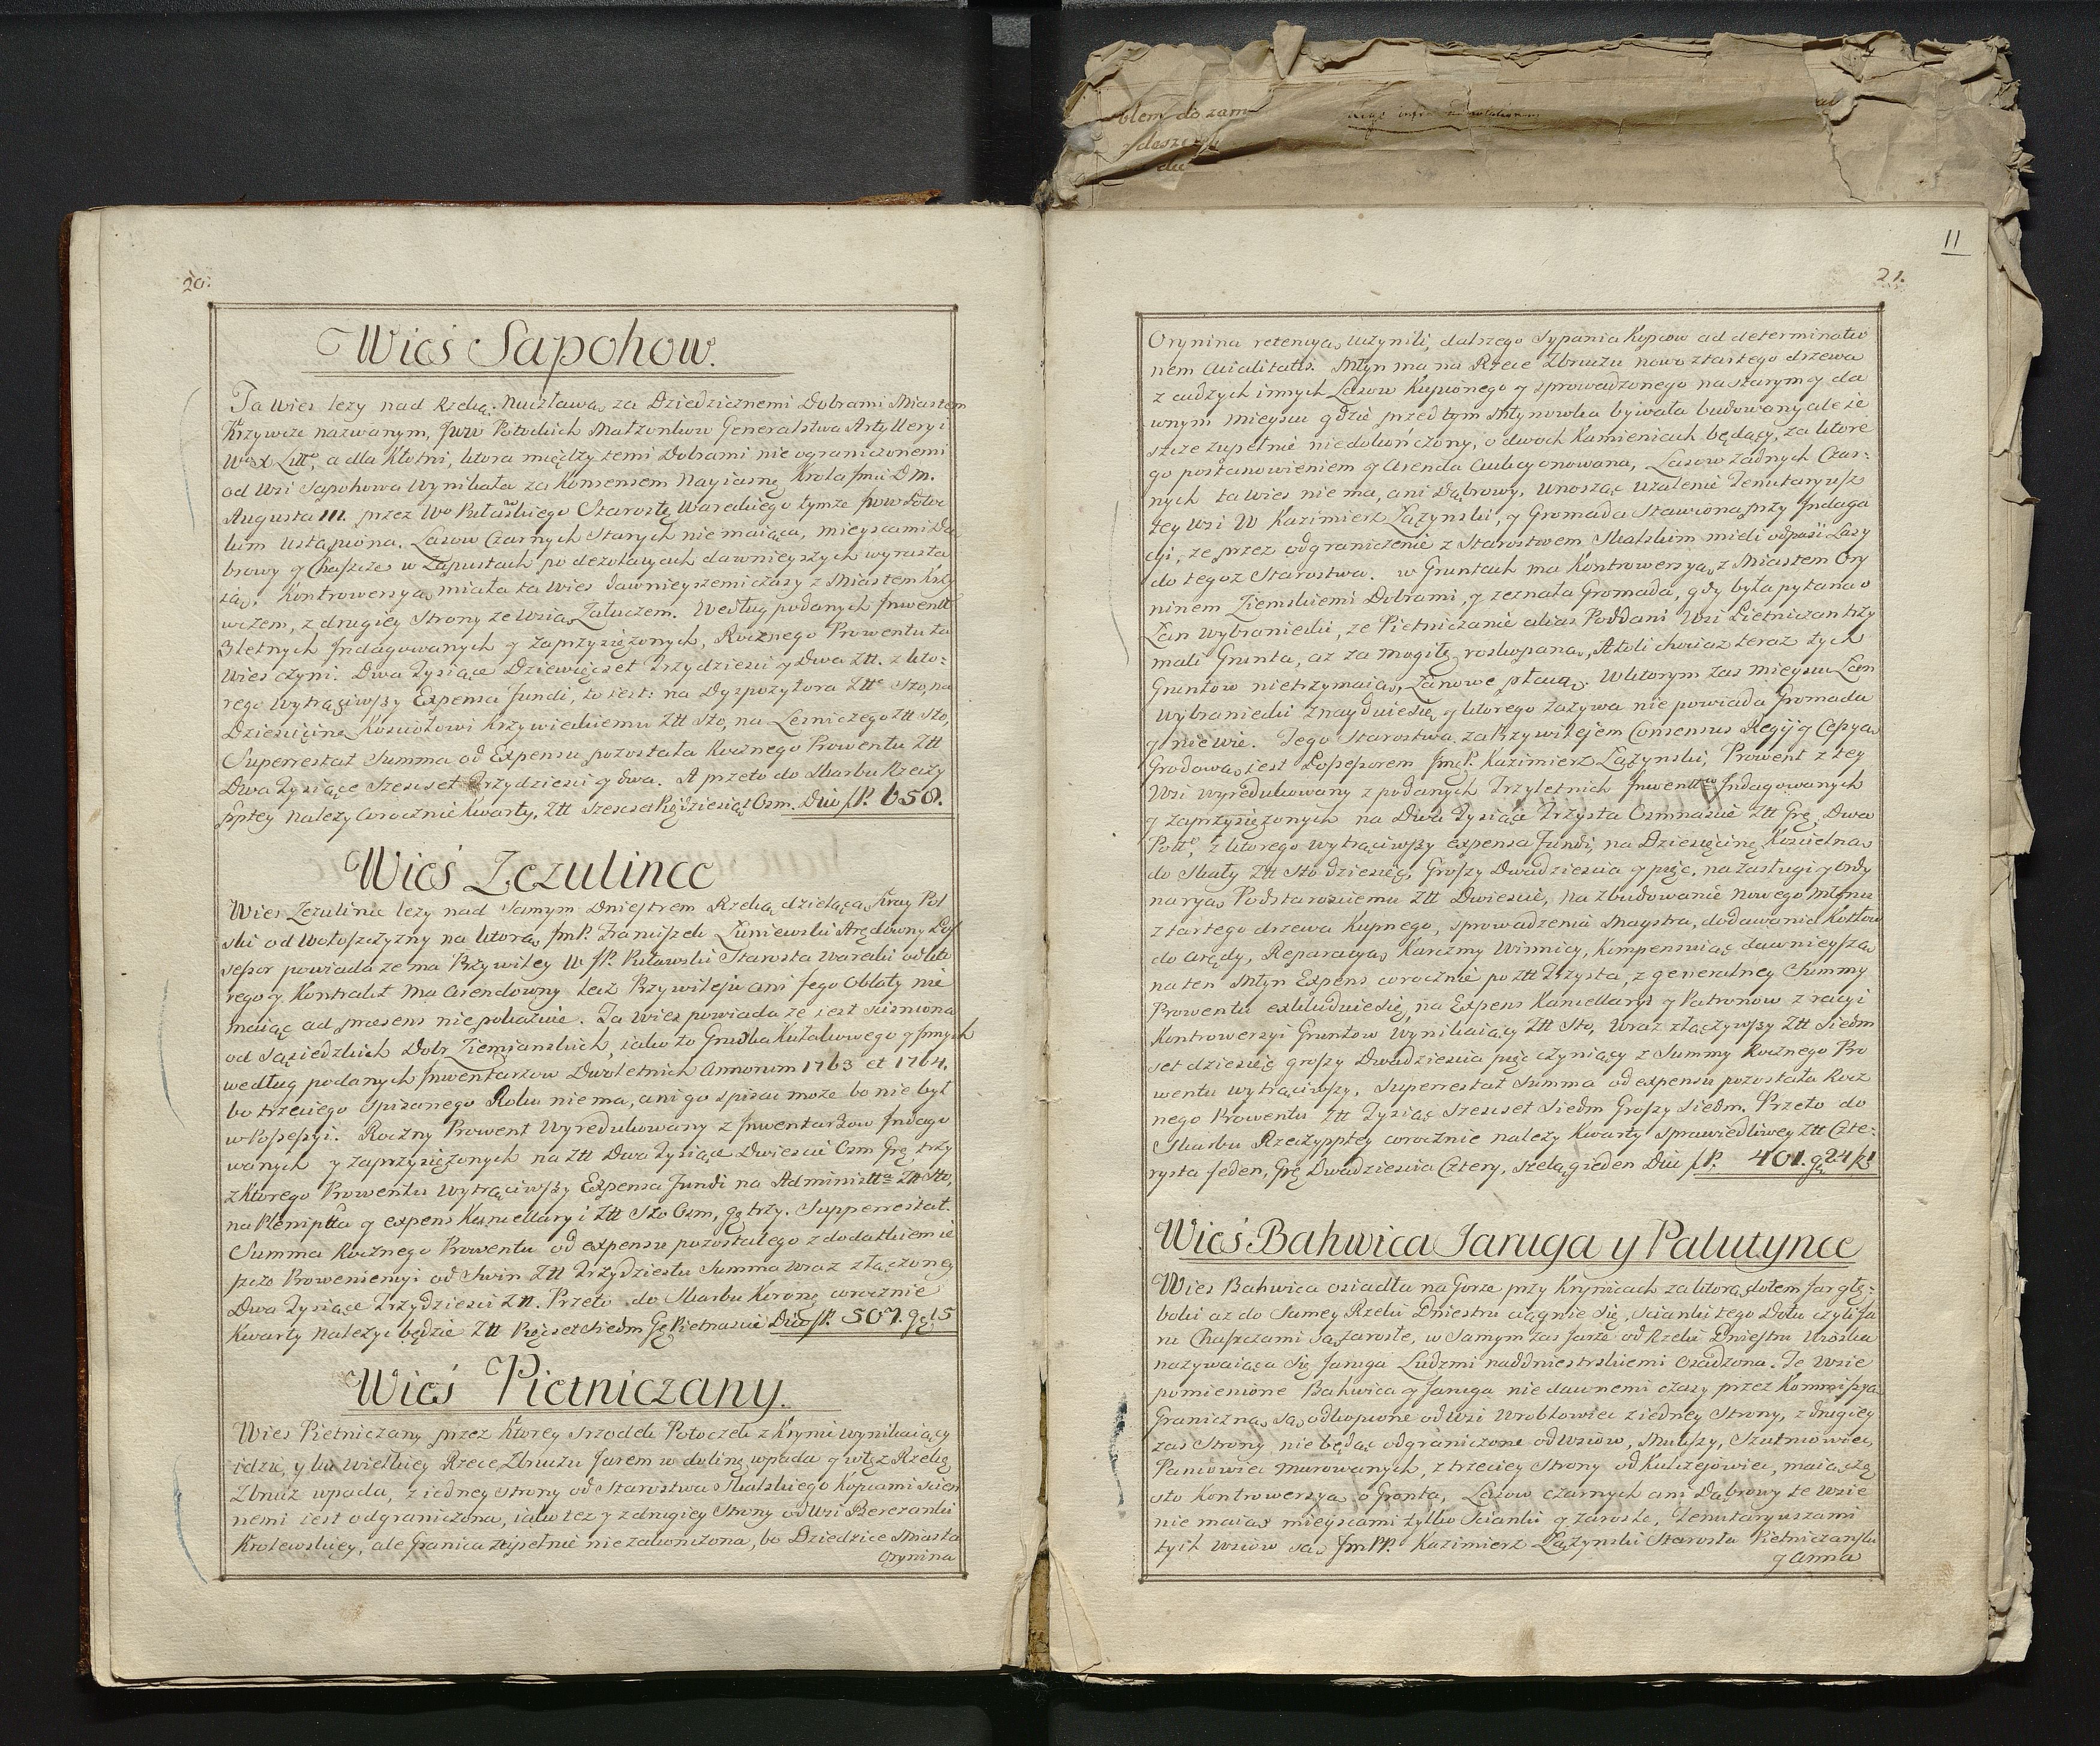 20.
Wieś Sapohow.
Ta Wies lezy nad Rzeką Nieczławą za Dziedzicznemi Dobrami Miastem
Krzywcze nazwanym, Jww Potockich Małzonkow Generalstwa Artyllery i
a dla Kłotni, ktora między temi Dobrami nie ograniczonemi
od Wsi Sapohowa wynikała za Konsensem Nayiasnę Krola Jmci D M.
Augusta III. przez Wo Puławskiego Starostę Wareckiego tymze Jww Potoc
kim Ustąpiona. Lasow Czarnych Starych nie maiąca, mieyscami Dą
browy y Chaszcze w Zapustach po dezolacyach dawnieyszych wyrasta
ią. Kontrowersyą miała ta Wies dawnieyszemi czasy z Miastem Krzy
wczem, z drugiey Strony ze Wsią Załuczem. Według podanych Inwentt
3letnych Indagowanych y Zaprzysiężonych, Rocznego Prowentu ta
Wies czyni. Dwa Tysiące Dziewięcset Trzydziesci y Dwa Ztt. z kto=
rego wytrąciwszy Expensa Fundi, to iest: na Dyspozytora Ztt Sto, na
Dziesięcinę Kosciołowi Krzywieckiemu Ztt Sto, na Lesniczego Ztt Sto,
Superrestat Summa od Expensu pozostała Rocznego Prowentu Ztt
Dwa Tysiące Szescset Trzydziesci y dwa. A przeto do Skarbu Rzeczy
pptey nalezy corocznie Kwarty, Ztt Szescset Pięcdziesiąt Osm. Dico fl. 658.
Wieś Zezulince
Wies Zezulince lezy nad Samym Dniestrem Rzeką dzielącą Kray Pol
ski od Wołoszczyzny na ktorą JmP. Franciszek Luniewski Arędowny Pos
sessor powiada ze ma Przywiley W JP. Puławski Starosta Warecki od kto
rego y Kontrakt ma Arendowny lecz Przywileju ani Jego Oblaty nie
maiąc ad praesens nie pokazuie. Ta Wies powiada ze iest scisniona
od Sąsiedzkich Dobr Ziemianskich, iako to Grudka Kułakowego y Innych
według podanych Inwentarzow Dwoletnich Annorum 1763 et 1764.
bo trzeciego Spisanego Roku niema, ani go spisac moze bo nie był
w Possessyi. Roczny Prowent Wyredukowany z Inwentarzow Indago
wanych y zaprzysiężonych na Ztt Dwa Tysiące Dwiescie Osm Grę trzy
z Ktorego Prowentu wytrąciwszy Expensa Fundi na Administta Ztt Sto,
na Plenipta y expens Kancellaryi Ztt Sto Osm, gę trzy. Supperrestat.
Summa Rocznego Prowentu od expensu pozostałego z dodatkiem ie
szcze Proweniencyi od Swin Ztt Trzydziestu Summa Wraz złączoney
Dwa Tysiące Trzydziesci Ztt. Przeto do Skarbu Koronę corocznie
Kwarty Nalezyc będzie Ztt Pięcset Siedm Gę Pietnascie Dico fl. 507. gę 15
Wieś Pietniczany.
Wies Pietniczany przez Ktorey Srzodek Potoczek z Krynic wynikaiący
idzie, y ku Wielkiey Rzece Zbruczu Jarem w dolinę wpada y wtęz Rzekę
Zbrucz wpada, z iedney strony od Starostwa Skalskiego Kopcami Scien
nemi iest odgraniczona, iako tez y z drugiey Strony od Wsi Berezanki
Krolewskiey, ale Granica zupełnie nie zakonczona, bo Dziedzice Miasta
Orynina
11
21.
Orynina retencyą Uczynili, dalszego Sypania Kopcow ad determinatio
nem Cuialitatis. Młyn ma na Rzece Zbruczu nowo z tartego drzewa
z cudzych innych Lasow Kupionego y sprowadzonego na starym y da
wnym mieyscu gdzie przed tym Młynowka bywała budowany ale ie
szcze zupełnie niedokończony, o dwoch Kamieniach będący, za ktore
go postanowieniem y Arenda Aukcyonowana, Lasow zadnych Czar=
nych ta Wies nie ma, ani Dąbrowy, Unosząc Uzalenie Tenutaryusz
tey Wsi W Kazimierz Łązynski, y Gromada Stawiona przy Indaga
cyi, ze przez odgraniczenie z Starostwem Skalskim mieli odpaść Lasy
do tegoz Starostwa. w Gruntach ma Kontrowersyą z Miastem Ory
ninem Ziemskiemi Dobrami, y zeznała Gromada, gdy była pytana o
Łan Wybraniecki, ze Pietniczanie alias Poddani Wsi Pietniczan trzy
mali Grunta, az za mogiłę roskopaną, Atoli chociaz teraz tych
Gruntow nietrzymaią, Łanowe płacą. W ktorym zas mieyscu Łan
Wybraniecki Znayduie się y ktorego zazywa nie powiada Gromada
y nie wie. Tego Starostwa, za Przywilejem Consensus Regij y Cessyą
Grodową iest Possessorem JmP. Kazimierz Łązynski, Prowent z tey
Wsi Wyredukowany z podanych Trzyletnich Inwentw Indagowanych
y Zaprzysiężonych na Dwa Tysiące Trzysta Osmnascie Ztt Grę, Dwa
z ktorego wytrąciwszy expensa Fundi, na Dziesięcinę Koscielną
do Skały Ztt Sto dziesięć, Groszy Dwadziescia y pięc, na Zasługi y Ordy
naryą Podstarosciemu Ztt Dwiescie, Na zbudowanie nowego Młynu
z tartego drzewa Kupnego, sprowadzenia Maystra, dodawanie Kotłow
do Arędy, Reparacyą Karczmy Winnicy, Kompensuiąc dawnieyszą
na ten Młyn Expens corocznie po Ztt Trzysta, z generalney Summy
Prowentu exkluduie się, na Expens Kancellaryi y Patronow z racyi
Kontrowersyi Gruntow Wynikaiący Ztt Sto, Wraz złączywszy Ztt Siedm
set dziesięć groszy Dwadziescia pięc czyniący z Summy Rocznego Pro
wentu wytrąciwszy, Superrestat Summa od expensu pozostała Rocz
nego Prowentu Ztt Tysiąc Szescset Siedm Groszy Siedm. Przeto do
Skarbu Rzeczypptey corocznie nalezy Kwarty Sprawiedliwey Ztt Czte=
rysta Jeden, Grę Dwadziescia Cztery, szeląg ieden Dico fl. 401. gę 24 ſz 1
Wieś Bakwica Jaruga y Palutynce
Wies Bakwica osiadła na Gorze przy Krynicach za ktorą dołem Jar głę=
boki az do Samey Rzeki Dniestru ciągnie Się, Scianki tego Dołu czyli Ja
ru Chaszczami są zarosłe, w Samym zas Jarze od Rzeki Dniestru Wioska
nazywaiąca się Jaruga Ludzmi naddniestrskiemi Osadzona. Te Wsie
pomienione Bakwica y Jaruga nie dawnemi czasy przez Kommissyą
Graniczną, są odkopione od Wsi Wrobłowiec z iedney Strony, z drugiey
zas Strony nie będąc odgraniczone od Wsiow, Mukszy, Szutnowiec,
Paniowiec Murowanych, z trzeciey Strony od Kulczejowiec, maią czę
sto Kontrowersyą o Gronta, Lasow czarnych ani Dąbrowy te Wsie
nie maią mieyscami tylko Scianki y Zarośle, Tenutaryuszami
tych Wsiow są JmPP. Kazimierz Łązynski Starosta Pietniczanski
y Anna